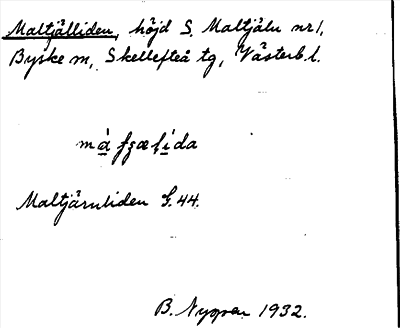 Maltjälliden, höjd S. Maltjäln nr 1,
Byske m, Skellefteå tg, Västerb. l.
Maltjärnliden G. 44.
B. Nygren 1932.